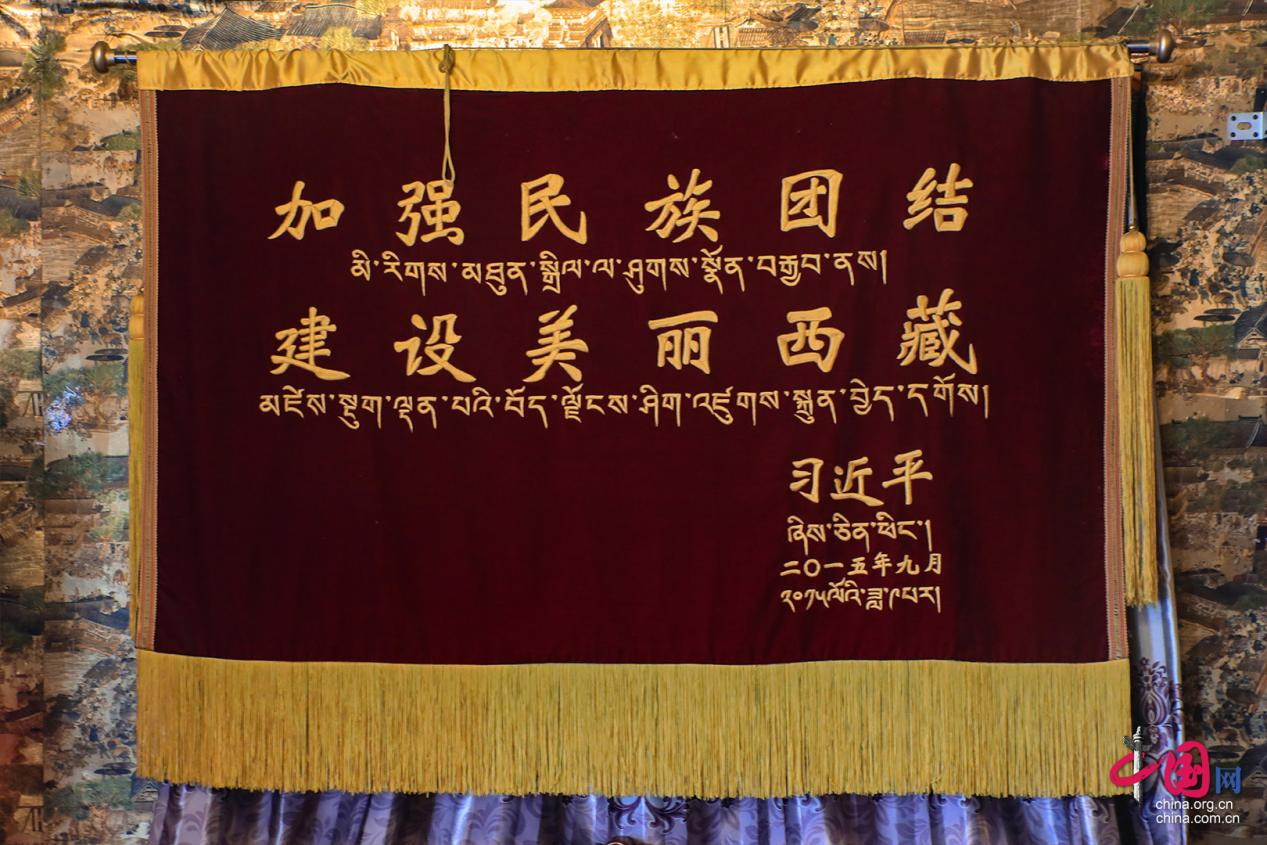 加强民族团结
མི་རིགས་མཐུན་སྒྲིལ་ལ་ཤུགས་སྣོན་བརྒྱབ་ནས།
建设美丽西藏
མཛེས་སྡུག་ལྡན་པའི་བོད་ལྗོངས་ཤིག་འཛུགས་སྐྲུན་བྱེད་དགོས།
习近平
ཞིས་ཅིན་ཕིང་།
二〇一五年九月
༢༠༡༥ལོའི་ཟླ་༩པར།
中国网
china.org.cn
china.com.cn